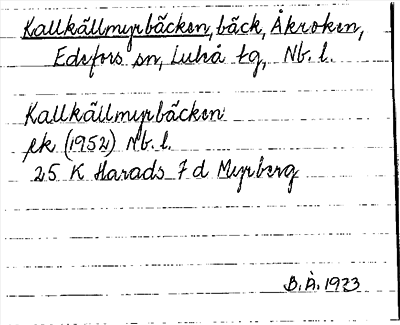 Kallkällmyrbäcken, bäck, Åkroken,
Edefors sn, Luleå tg, Nb. l.
Kallkällmyrbäcken
ek (1952) Nb. l.
25 K Harads 7 d Myrberg
B.Å. 1973